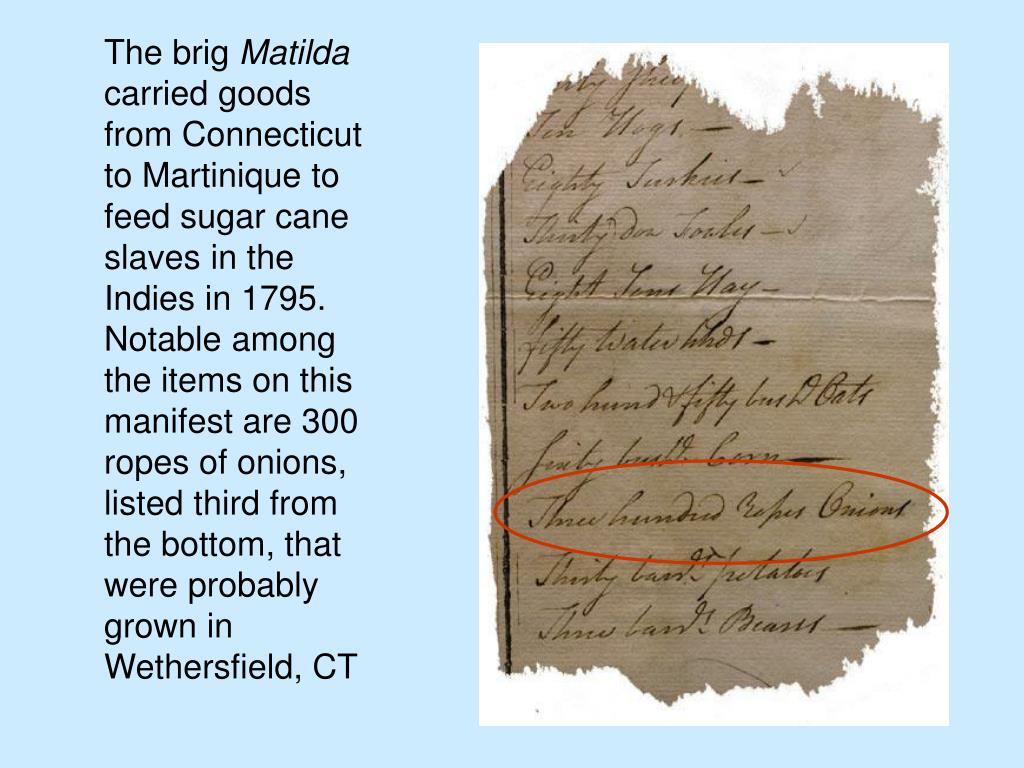 The brig Matilda
carried goods
from Connecticut
to Martinique to
feed sugar cane
slaves in the
Indies in 1795.
Notable among
the items on this
manifest are 300
ropes of onions,
listed third from
the bottom, that
were probably
grown in
Wethersfield, CT
Ten Hogs —
Eighty Turkies —
Thirty doz Fowles —
Eight Tons Hay —
fifty water hhds —
Two hund & fifty bush Oats
bush Corn —
Three hundred Ropes Onions
Thirty barrs potatoes
Three barrs Beans —